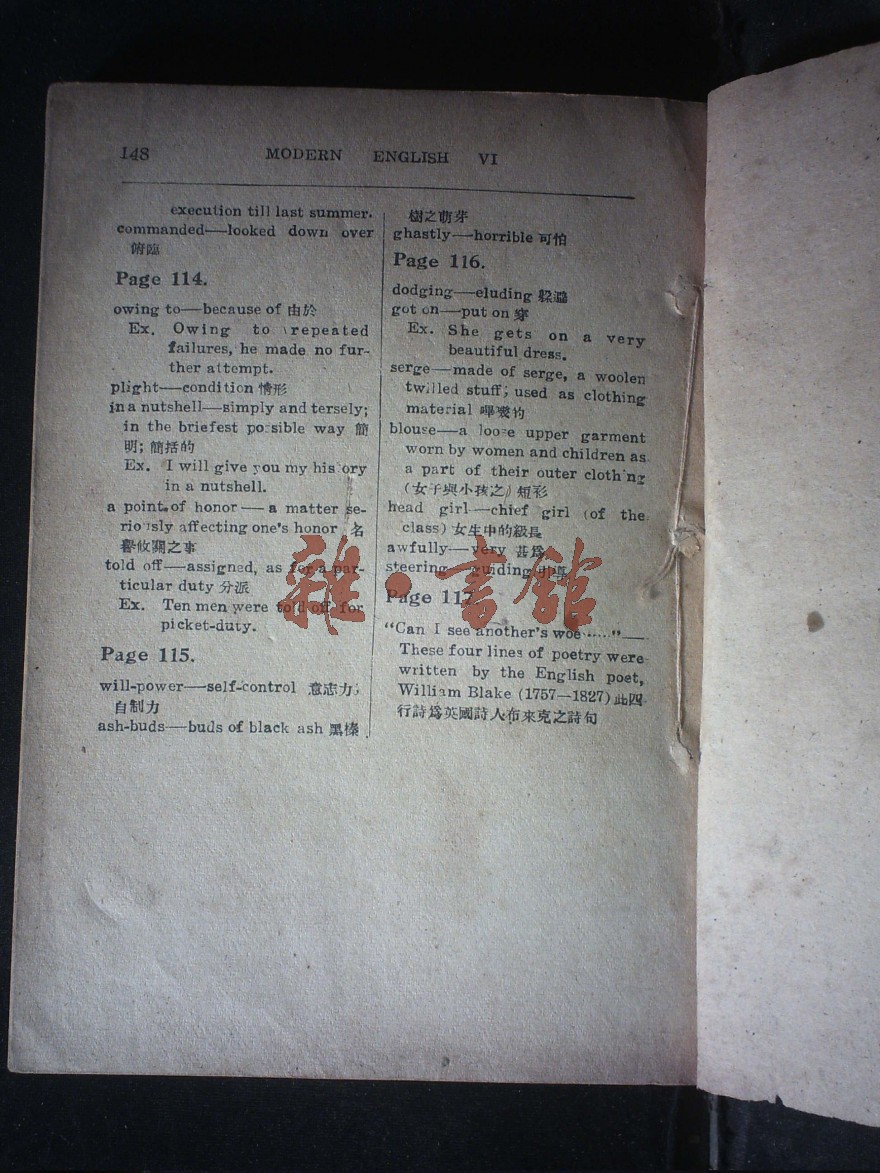 148 MODERN ENGLISH VI
execution till last summer.
commanded—looked down over
俯臨
Page 114.
owing to—because of 由於
Ex. Owing to repeated
failures, he made no fur-
ther attempt.
plight—condition 情形
in a nutshell—simply and tersely;
in the briefest possible way 簡
明; 簡括的
Ex. I will give you my history
in a nutshell.
a point of honor—a matter se-
riously affecting one's honor 名
譽攸關之事
told off—assigned, as for a par-
ticular duty 分派
Ex. Ten men were told off for
picket-duty.
Page 115.
will-power—self-control 意志力;
自制力
ash-buds—buds of black ash 黑榛
樹之萌芽
ghastly—horrible 可怕
Page 116.
dodging—eluding 躱
got on—put on 穿
Ex. She gets on a very
beautiful dress.
serge—made of serge, a woolen
twilled stuff; used as clothing
material 嗶嘰的
blouse—a loose upper garment
worn by women and children as
a part of their outer clothing
(女子與小孩之) 短衫
head girl—chief girl (of the
class) 女生中的級長
awfully—very 甚爲
steering—guiding 引導
Page 117.
"Can I see another's woe ......"—
These four lines of poetry were
written by the English poet,
William Blake (1757—1827) 此四
行詩爲英國詩人布來克之詩句
雜·書館